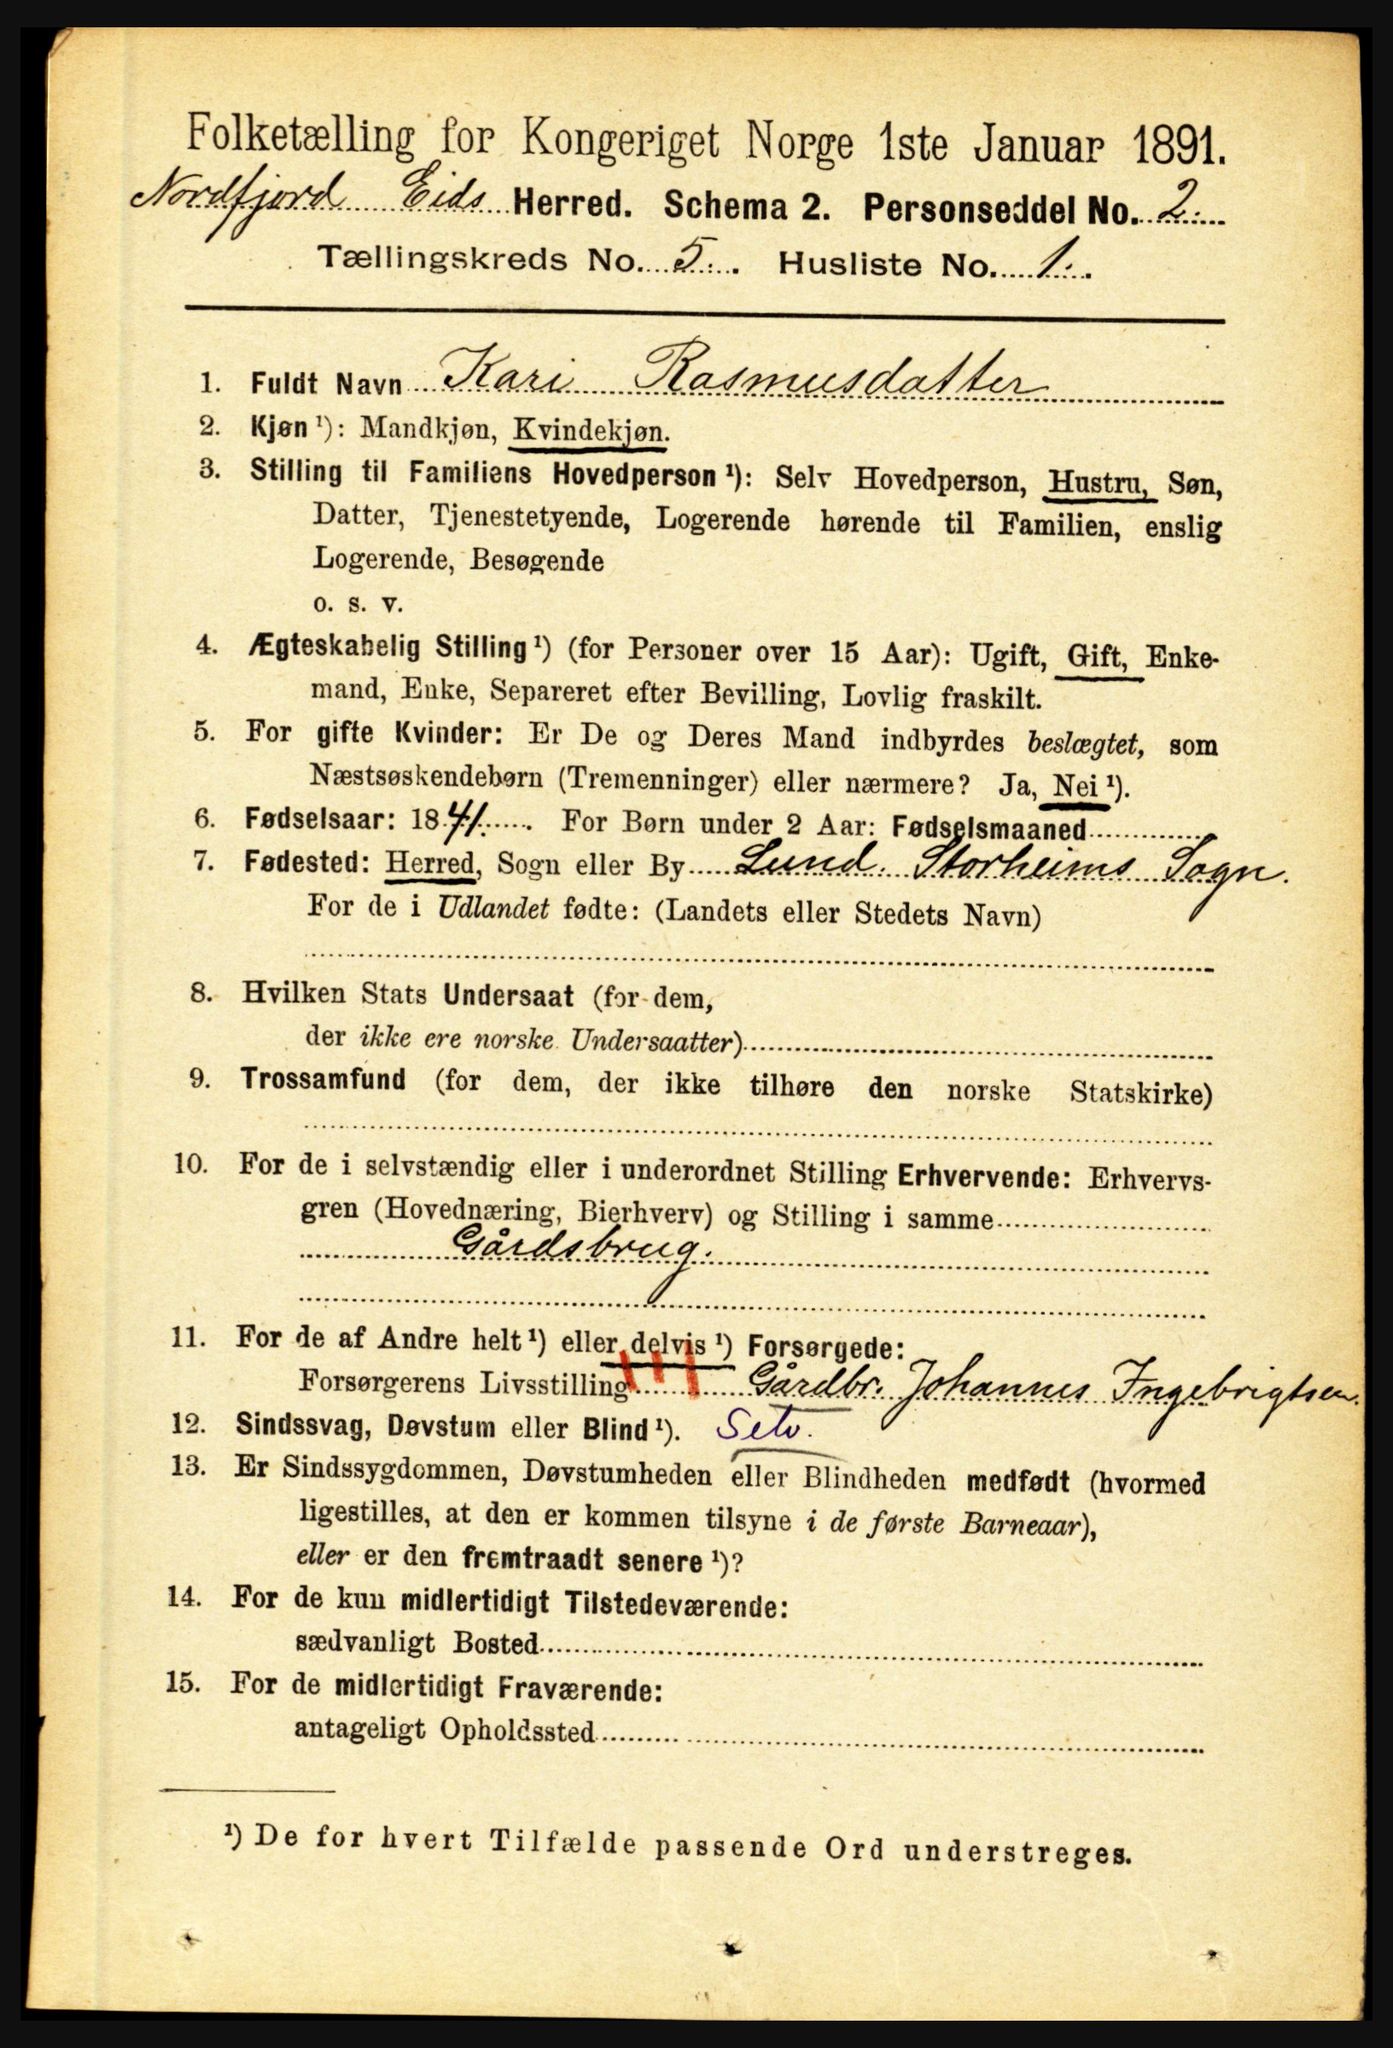 Folketælling for Kongeriget Norge 1ste Januar 1891.
Nordfjord Eids Herred. Schema 2. Personseddel No. 2.
Tællingskreds No. 5. Husliste No. 1.
1. Fuldt Navn Kari Rasmusdatter
2. Kjøn ¹): Mandkjøn, Kvindekjøn.
3. Stilling til Familiens Hovedperson ¹): Selv Hovedperson, Hustru, Søn,
Datter, Tjenestetyende, Logerende hørende til Familien, enslig
Logerende, Besøgende
o. s. v.
4. Ægteskabelig Stilling ¹) (for Personer over 15 Aar): Ugift, Gift, Enke-
mand, Enke, Separeret efter Bevilling, Lovlig fraskilt.
5. For gifte Kvinder: Er De og Deres Mand indbyrdes beslægtet, som
Næstsøskendebørn (Tremenninger) eller nærmere? Ja, Nei ¹).
6. Fødselsaar: 1841. For Børn under 2 Aar: Fødselsmaaned
7. Fødested: Herred, Sogn eller By Lund. Storheims Sogn.
For de i Udlandet fødte: (Landets eller Stedets Navn)
8. Hvilken Stats Undersaat (for dem,
der ikke ere norske Undersaatter)
9. Trossamfund (for dem, der ikke tilhøre den norske Statskirke)
10. For de i selvstændig eller i underordnet Stilling Erhvervende: Erhvervs-
gren (Hovednæring, Bierhverv) og Stilling i samme
Gårdsbrug.
11. For de af Andre helt ¹) eller delvis ¹) Forsørgede:
Forsørgerens Livsstilling Gårdbr. Johannes Ingebrigtsen.
12. Sindssvag, Døvstum eller Blind ¹).
13. Er Sindssygdommen, Døvstumheden eller Blindheden medfødt (hvormed
ligestilles, at den er kommen tilsyne i de første Barneaar),
eller er den fremtraadt senere ¹)?
14. For de kun midlertidigt Tilstedeværende:
sædvanligt Bosted
15. For de midlertidigt Fraværende:
antageligt Opholdssted
¹) De for hvert Tilfælde passende Ord understreges.